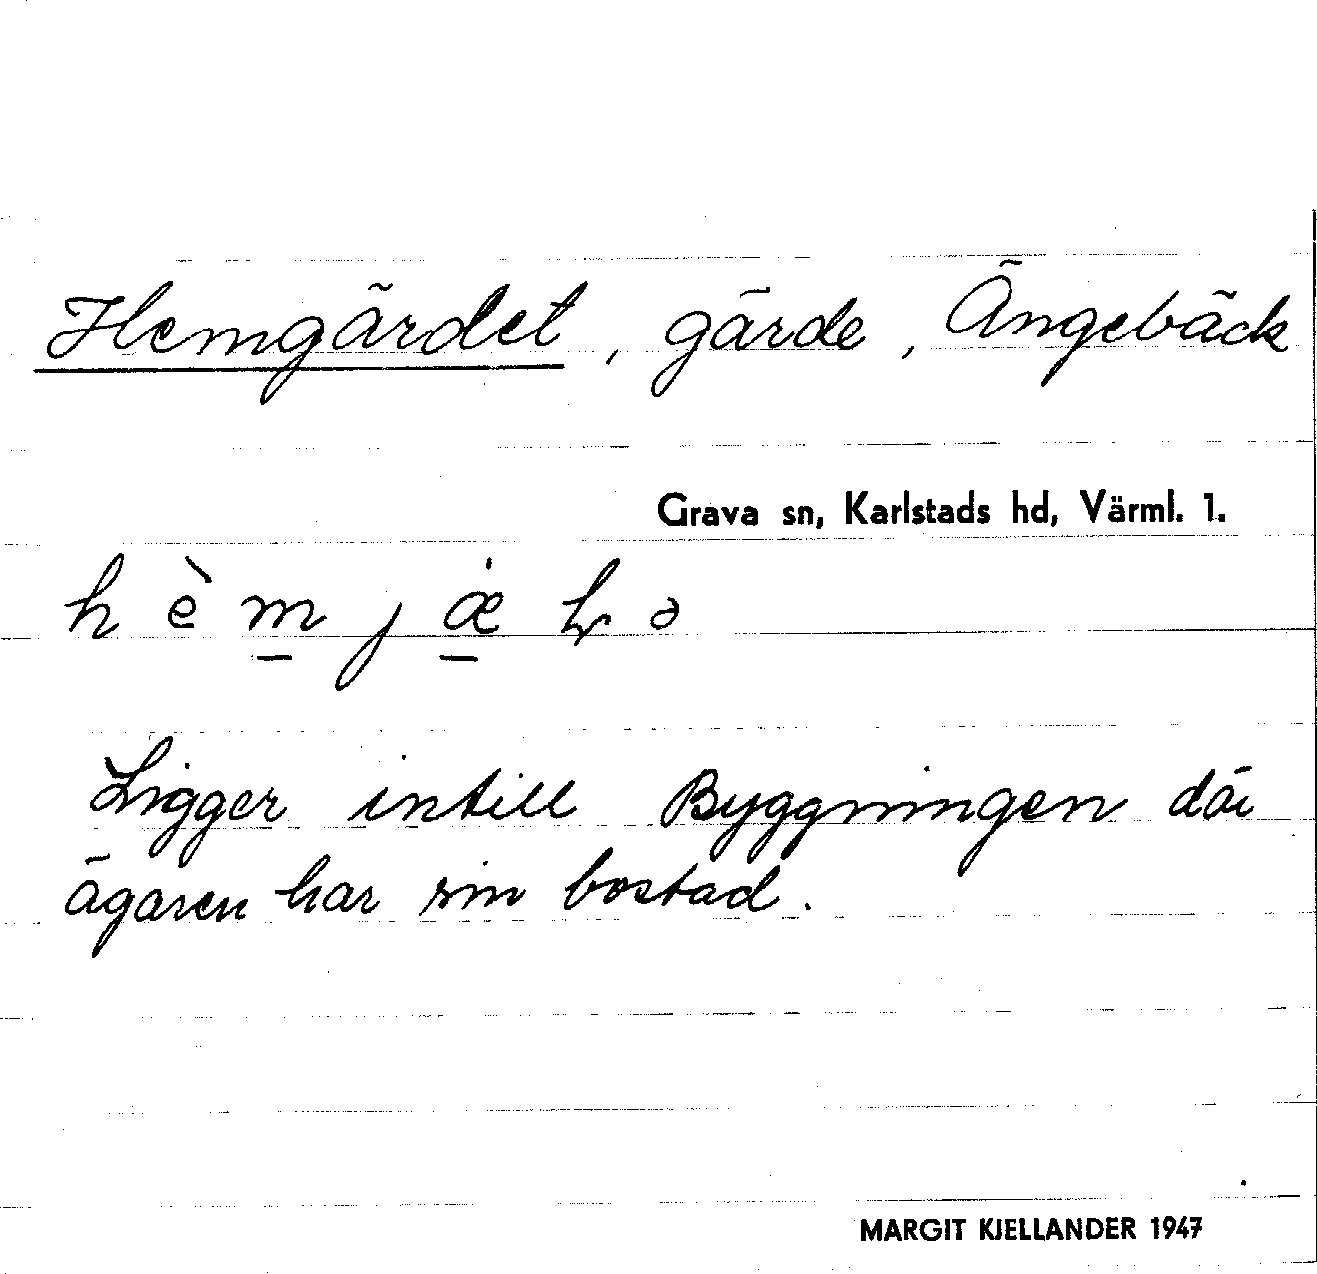 Hemgärdet, gärde, Ängebäck
Grava sn, Karlstads hd, Värml. 1.
h è m j æ̇ ɽ ə
Ligger intill Byggningen där
ägaren har sin bostad.
MARGIT KJELLANDER 1947